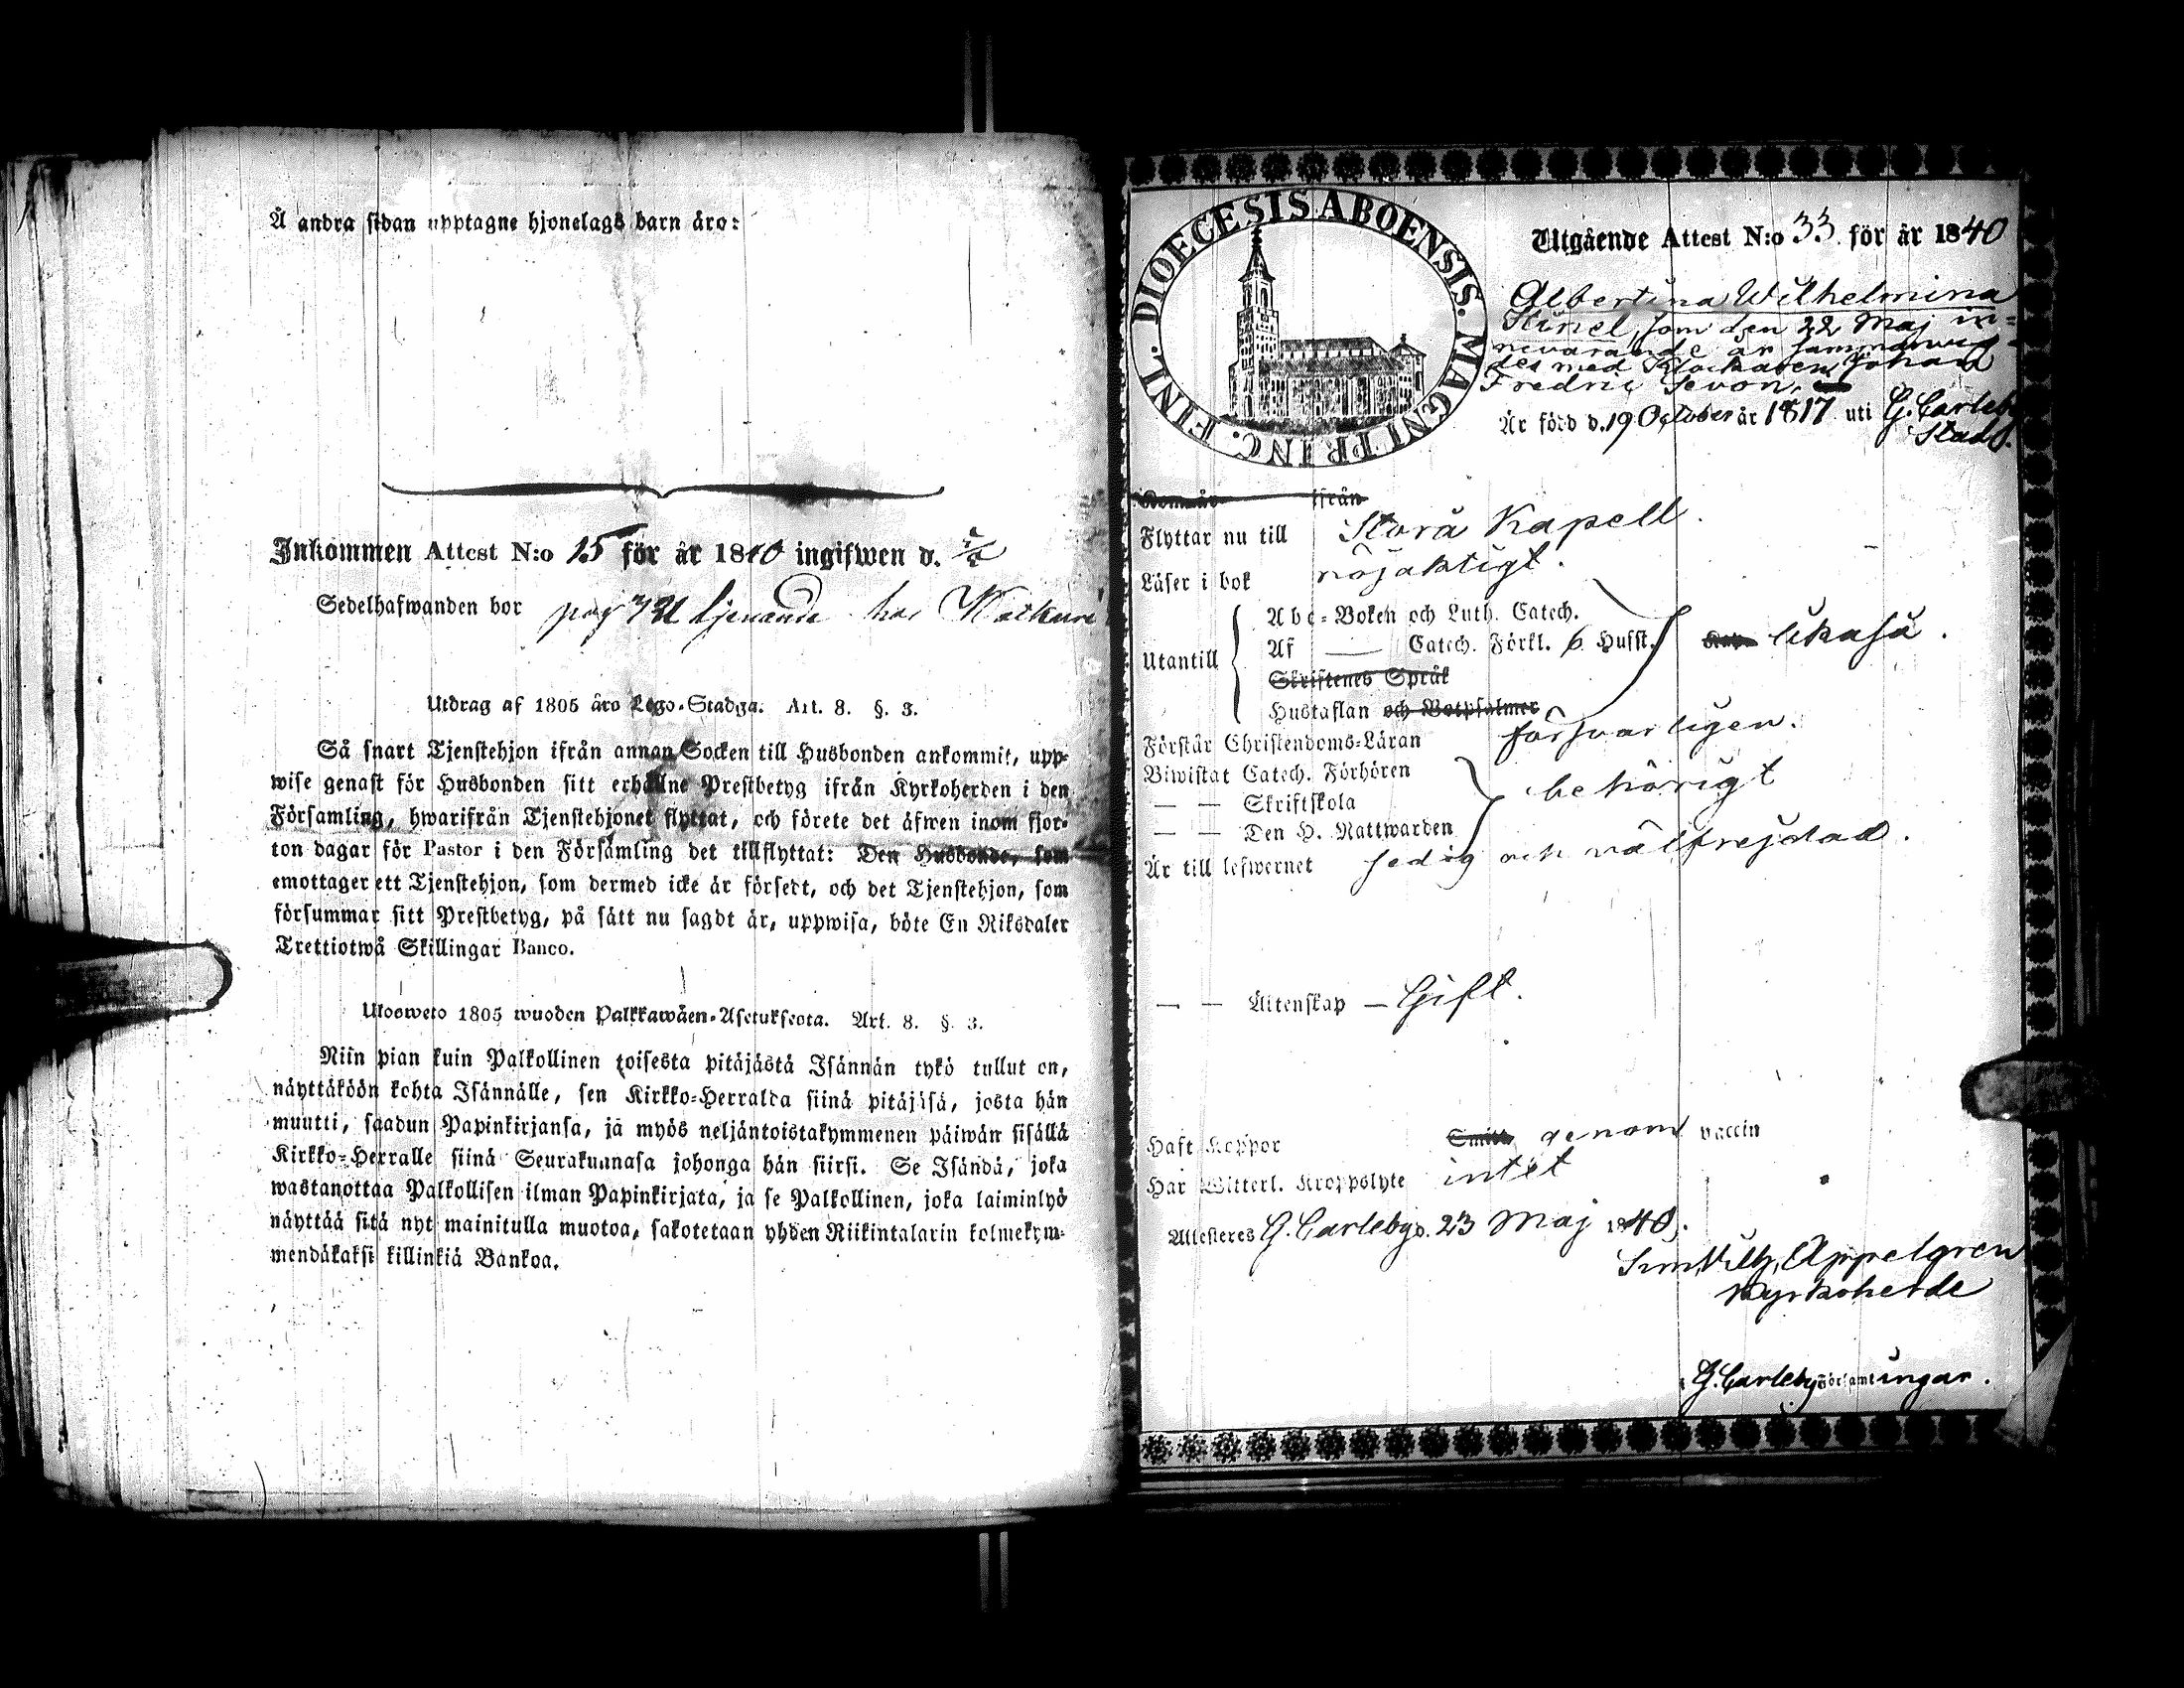 Å andra sidan upptagne hjonelags barn äro:
Inkommen Attest N:o 15 för år 1840 ingifwen d.
Sedelhafwanden bor pag 731 tjenande hos
Utdrag af 1805 års Lego-Stadga. Art. 8. §. 3.
Så snart Tjenstehjon ifrån annan Socken till Husbonden ankommit, upp-
wise genast för Husbonden sitt erhållne Prestbetyg ifrån Kyrkoherden i den
Församling, hwarifrån Tjenstehjonet flyttat, och förete det äfwen inom fjor-
ton dagar för Pastor i den Församling det tillflyttat: Den Husbonde, som
emottager ett Tjenstehjon, som dermed icke är försedt, och det Tjenstehjon, som
försummar sitt Prestbetyg, på sätt nu sagdt är, uppwisa, böte En Riksdaler
Trettiotwå Skillingar Banco.
Ulosweto 1805 wuoden Palkkawäen-Asetuksesta. Art. 8. §. 3.
Niin pian kuin Palkollinen toisesta pitäjästä Isännän tykö tullut on,
näyttäköön kohta Isännälle, sen Kirkko-Herralda siinä pitäjäsä, josta hän
muutti, saadun Papinkirjansa, ja myös neljäntoistakymmenen päiwän sisällä
Kirkko-Herralle siinä Seurakunnasa johonga hän siirsi. Se Isändä, joka
wastanottaa Palkollisen ilman Papinkirjata, ja se Palkollinen, joka laiminlyö
näyttää sitä nyt mainitulla muotoa, sakotetaan yhden Riikintalarin kolmekym-
mendäkaksi killinkiä Bankoa.
DIOECESIS ABOENSIS. MAGNI PRINC. FINL.
Utgående Attest N:o 33 för år 1840
Albertina Wilhelmina
som den 22 Maj in-
nevarande år sammanvig-
des med Klockaren Johan
Fredric Sevon.
Är född d. 19 October år 1817 uti G. Carleby
Stad.
Kom år ifrån
Flyttar nu till Storå Kapell.
Läser i bok nöjaktigt.
Utantill
Abc-Boken och Luth. Catech.
Af — Catech. Förkl. 6. Hufst. likaså.
Skriftenes Språk
Hustaflan och Botpsalmer
Förstår Christendoms-Läran försvarligen.
Biwistat Catech. Förhören
— — Skriftskola behörigt
— — Den H. Nattwarden
Är till lefwernet sedig och välfrejdad.
— — Äktenskap — Gift.
Haft Koppor genom vaccin
Har Witterl. Kroppslyte intet
Attesteres G. Carleby d. 23 Maj 1840.
Sim. Vilh. Appelgren
Kyrkoherde
G. Carleby Församlingar.